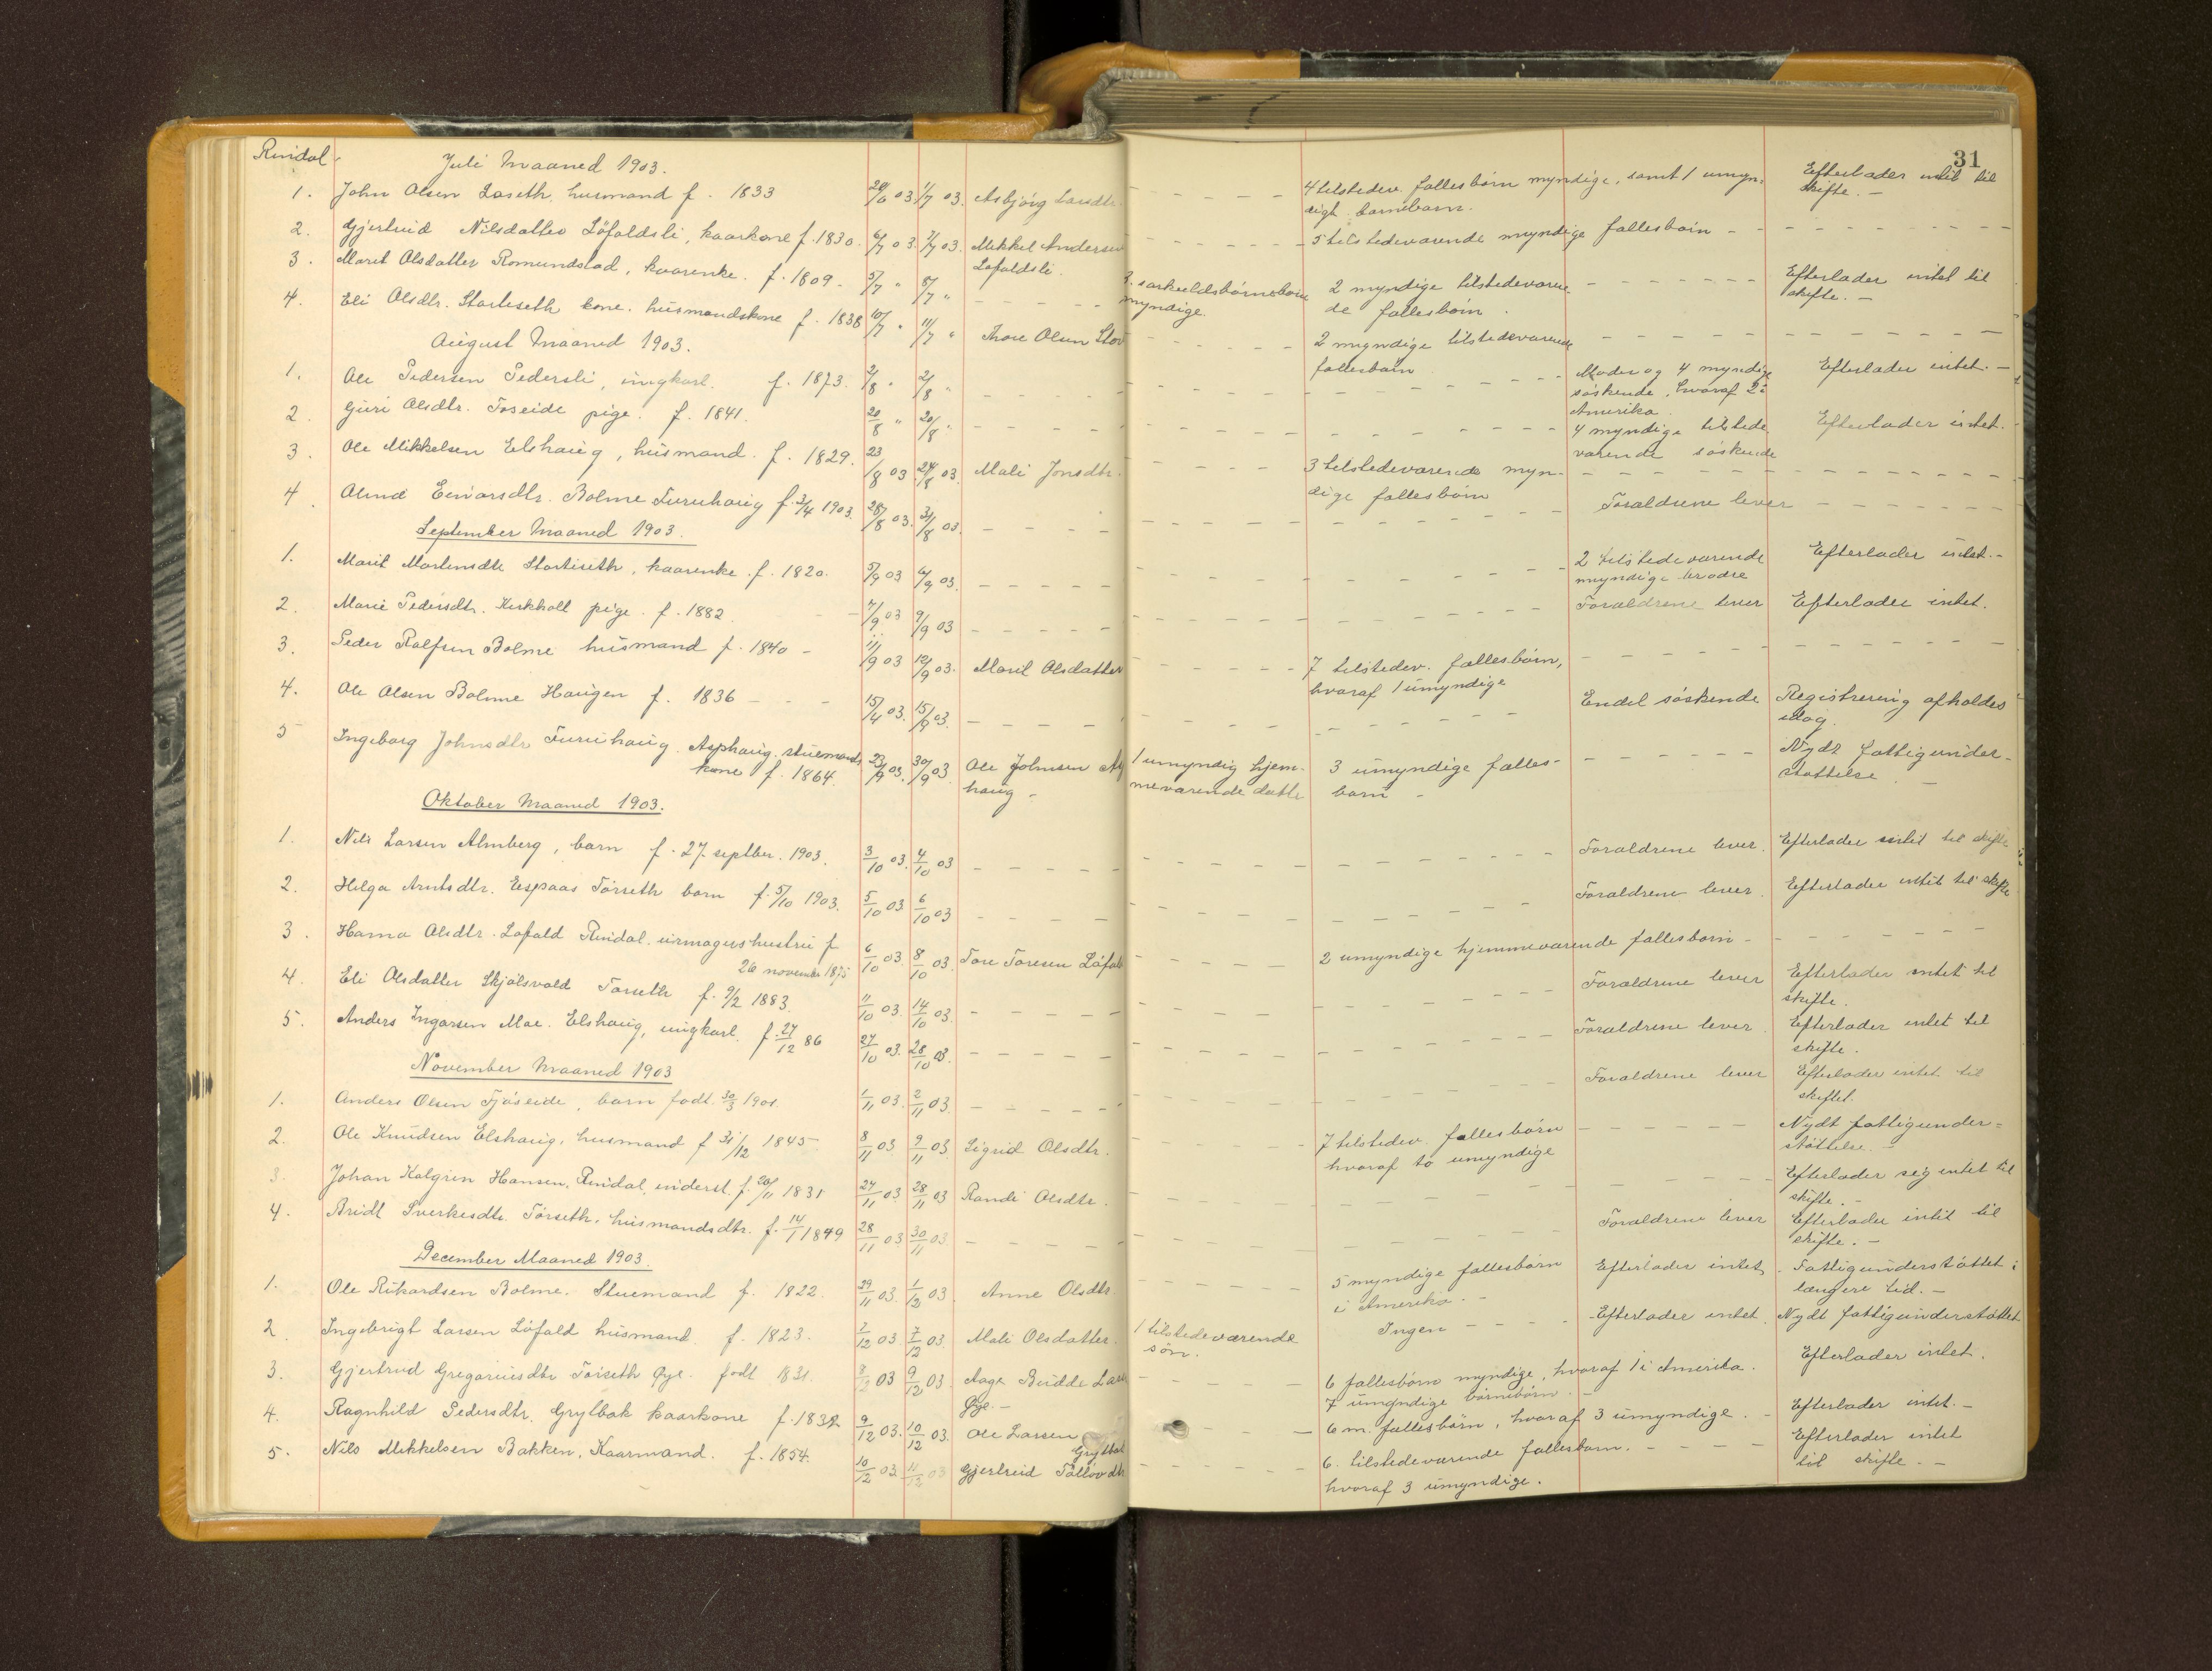 31
Rindal.
Juli Maaned 1903.
1. John Olsen Laseth, husmand f. 1833 28/6 03. 1/7 03. Asbjörg Larsdtr. 4 tilstedev. fallesbörn myndige, samt 1 umyn- Efterlader intet til
digt barnebarn. skifte. -
2. Gjertrud Nilsdatter Löfaldsli, kaarkone f. 1830. 6/7 03. 7/7 03. Mikkel Andersen 5 tilstedevarende myndige fallesbörn
Løfaldsli.
3. Marit Olsdatter Romundstad, kaarenke. f. 1809. 5/7 " 8/7 " 2 myndige tilstedevaren- Efterlader intet til
myndige. de fallesbörn. skifte. -
4. Eli Olsdtr. Storliseth kone. husmandskone f. 1838 10/7 " 11/7 " Thore Olsen 2 myndige tilstedevarende
fallesbörn
August Maaned 1903.
1. Ole Pedersen Pedersli, ungkarl. f. 1873. 2/8 " 2/8 " Moder og 4 myndige Efterlader intet. -
söskende, hvoraf 2 i
Amerika.
2. Guri Olsdtr. Foseide pige. f. 1841. 20/8 " 20/8 " 4 myndige tilstede Efterlader intet.
varende söskende
3. Ole Mikkelsen Elshaug, husmand. f. 1829. 23/8 03 24/8 03. Mali Jonsdtr. 3 tilstedevarende myn-
dige fallesbörn
4. Einarsdtr. Bolme Furuhaug f. 3/4 1903. 28/8 03. 31/8 03. Foraldrene lever
September Maaned 1903.
1. Marit Mortensdtr Storliseth, kaarenke. f. 1820. 5/9 03 6/9 03. 2 tilstedevarende Efterlader intet. -
myndige brødre
2. Marie Pedersdtr. Kirkholt pige. f. 1882. 4/9 03 9/9 03 Foraldrene lever Efterlader intet.
3. Peder Rolfsen Bolme husmand f. 1840 - 11/9 03 12/9 03. Marit Olsdatter 7 tilstedev. fallesbörn,
hvoraf 1 umyndige
4. Ole Olsen Bolme Haugen f. 1836 15/4 03. 15/9 03. Endel söskende Registrering afholdes
idag.
5 Ingeborg Johnsdtr Furuhaug. Asphaug. stuemands 23/9 03. 30/9 03. Ole Johnsen 1 umyndig hjem- 3 umyndige falles- Nydt fattigunder-
kone f. 1864. haug - mevarende datte barn - støttelse -
Oktober Maaned 1903.
1. Nils Larsen Almberg, barn f. 27. septber. 1903. 3/10 03. 4/10 03 Foraldrene lever. Efterlader intet til skifte
2. Helga Arntsdtr. Espaas Törseth barn f. 5/10 1903. 5/10 03. 6/10 03 Foraldrene lever. Efterlader intet til skifte
3. Hanna Olsdtr. Løfald Rindal. urmagershustru f 6/10 03. 8/10 03. Tore Toresen Löfald 2 umyndige hjemmevarende fallesbörn -
26 november 1875
4. Eli Olsdatter Skjölsvold Torseth f. 9/2 1883. 11/10 03. 14/10 03. Foraldrene lever Efterlader intet til
skifte.
5. Anders Ingarsen Moe. Elshaug, ungkarl. f. 27/12 86 27/10 03. 28/10 03. Foraldrene lever. Efterlader intet til
skifte.
November Maaned 1903
1. Anders Olsen Fjöseide, barn fodt. 30/3 1901. 1/11 03. 2/11 03. Foraldrene lever Efterlader intet til
skiftet.
2. Ole Knudsen Elshaug, husmand f 31/12 1845. 8/11 03 9/11 03. Sigrid Olsdtr. 7 tilstedev. fallesbörn Nydt fattigunder=
hvoraf to umyndige støttelse. -
3. Johan Kalgrin Hansen, Rindal, inderst. f. 20/11 1831 27/11 03 28/11 03 Randi Olsdtr. Efterlader sig intet til
skifte. -
4. Sverkesdtr. Törseth, husmandsdtr. f. 14/1 1849 28/11 03 30/11 03. Foraldrene lever Efterlader intet til
skifte. -
December Maaned 1903.
1. Ole Rikardsen Bolme. Stuemand f. 1822. 29/11 03. 1/12 03. Anne Olsdtr. 5 myndige fallesbörn Efterlader intet. Fattigunderstöttet i
i Amerika. - længere tid. -
2. Ingebrigt Larsen Löfald husmand. f. 1823. 7/12 03 7/12 03. Mali Olsdatter. 1 tilstedeværende Ingen Efterlader intet. Nydt fattigunderstøttet
sön.
3. Gjertrud Gregoriusdtr Törseth Øye. fodt 1831. 8/12 03 9/12 03. Aage 6 fallesbörn myndige, hvoraf 1 i Amerika. Efterlader intet.
Øye. - 7 umyndige börnebörn. -
4. Ragnhild Pedersdtr. Grytbak kaarkone f. 1832 9/12 03. 10/12 03. Ole Larsen 6 m. fallesbörn, hvoraf 3 umyndige. - Efterlader intet. -
Grytbak
5. Nils Mikkelsen Bakken, Kaarmand. f. 1854. 10/12 03. 11/12 03 Gjertrud 6. tilstedevarende fallesbarn. Efterlader intet
hvoraf 3 umyndige. til skifte. -